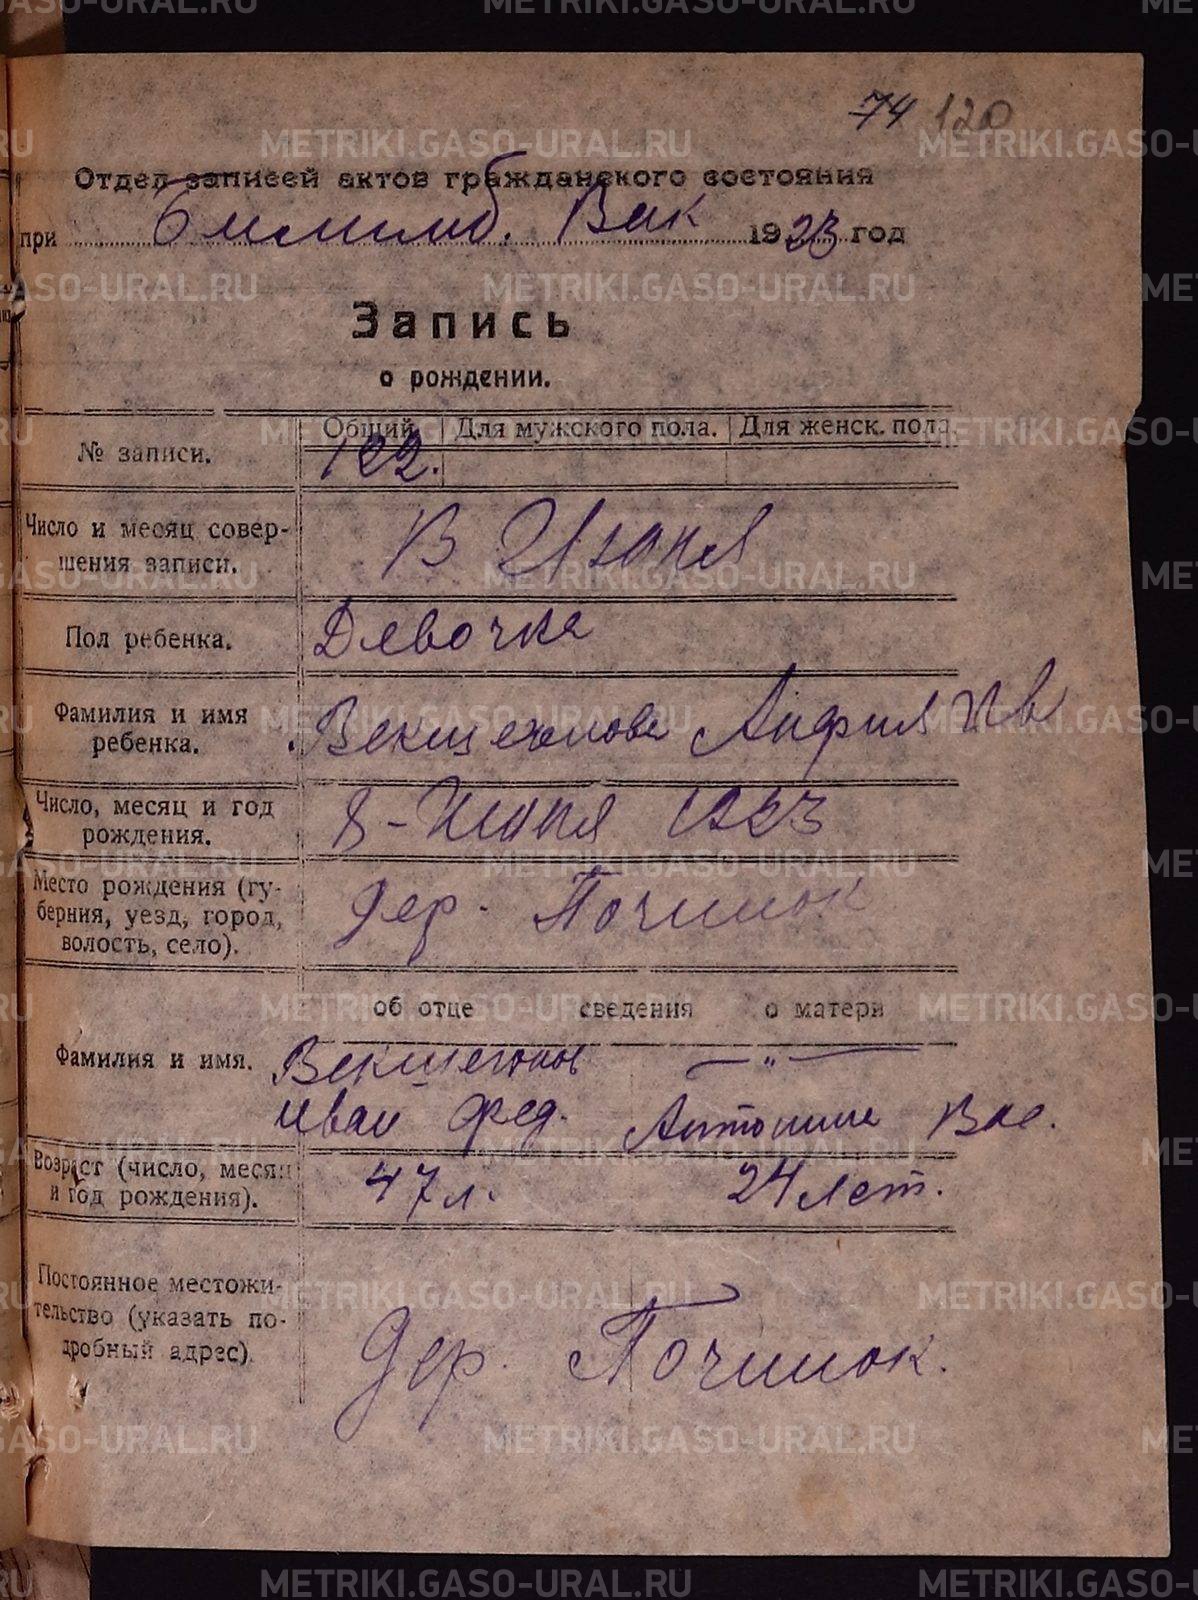 74 120
Отдел записей актов гражданского состояния
при Билимб. Вик 1923 год
Запись
о рождении.
№ записи.
Общий
Для мужского пола.
Для женск. пола
122.
Число и месяц совер-
шения записи.
Июня
Пол ребенка.
Девочка
Фамилия и имя
ребенка.
Векшегонова Анфия Ив
Число, месяц и год
рождения.
8 - Июня 1923
Место рождения (гу-
берния, уезд, город,
волость, село).
дер. Починок
об отце сведения о матери
Фамилия и имя.
Векшегонов — „ —
Иван Фед. Антонина Вас.
Возраст (число, месяц
и год рождения).
47 л. 24 лет.
Постоянное местожи-
тельство (указать по-
дробный адрес).
дер. Починок.
METRIKI.GASO-URAL.RU